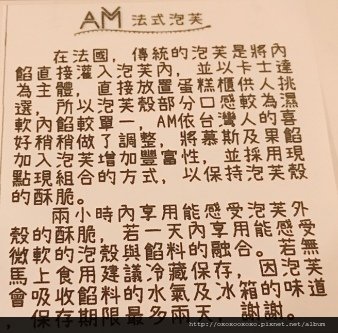 AM 法式泡芙
在法國，傳統的泡芙是將內
餡直接灌入泡芙內，並以卡士達
為主體，直接放置蛋糕櫃供人挑
選，所以泡芙殼部分口感較為濕
軟內餡較單一，AM依台灣人的喜
好稍稍做了調整，將慕斯及果餡
加入泡芙增加豐富性，並採用現
點現組合的方式，以保持泡芙殼
的酥脆。
兩小時內享用能感受泡芙外
殼的酥脆，若一天內享用能感受
微軟的泡殼與餡料的融合。若無
馬上食用建議冷藏保存，因泡芙
會吸收餡料的水氣及冰箱的味道
，保存期限最多兩天，謝謝。
http://oxoxoxoxo.pixnet.net/album